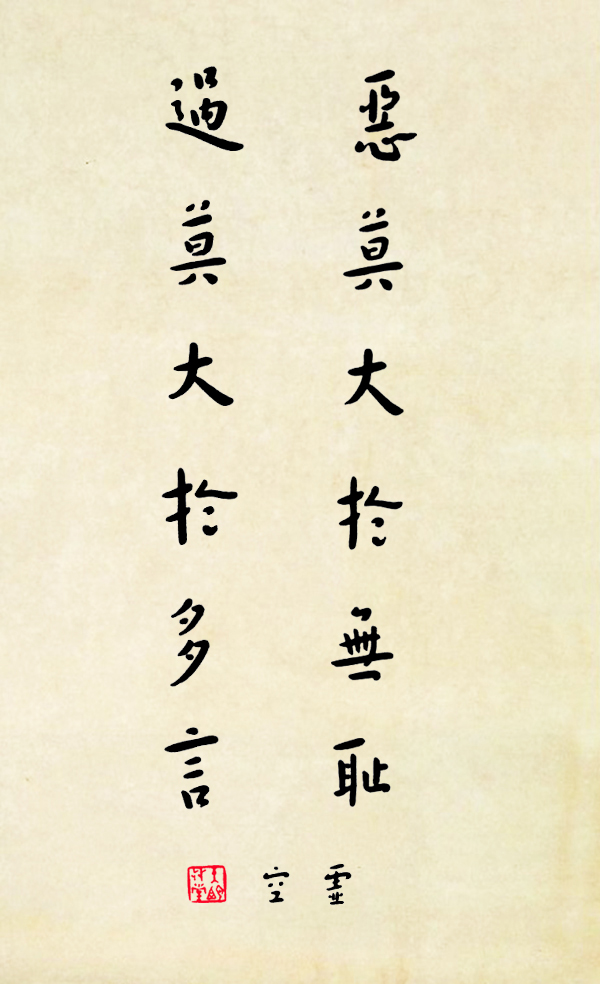 惡莫大於無耻
過莫大於多言
霊空